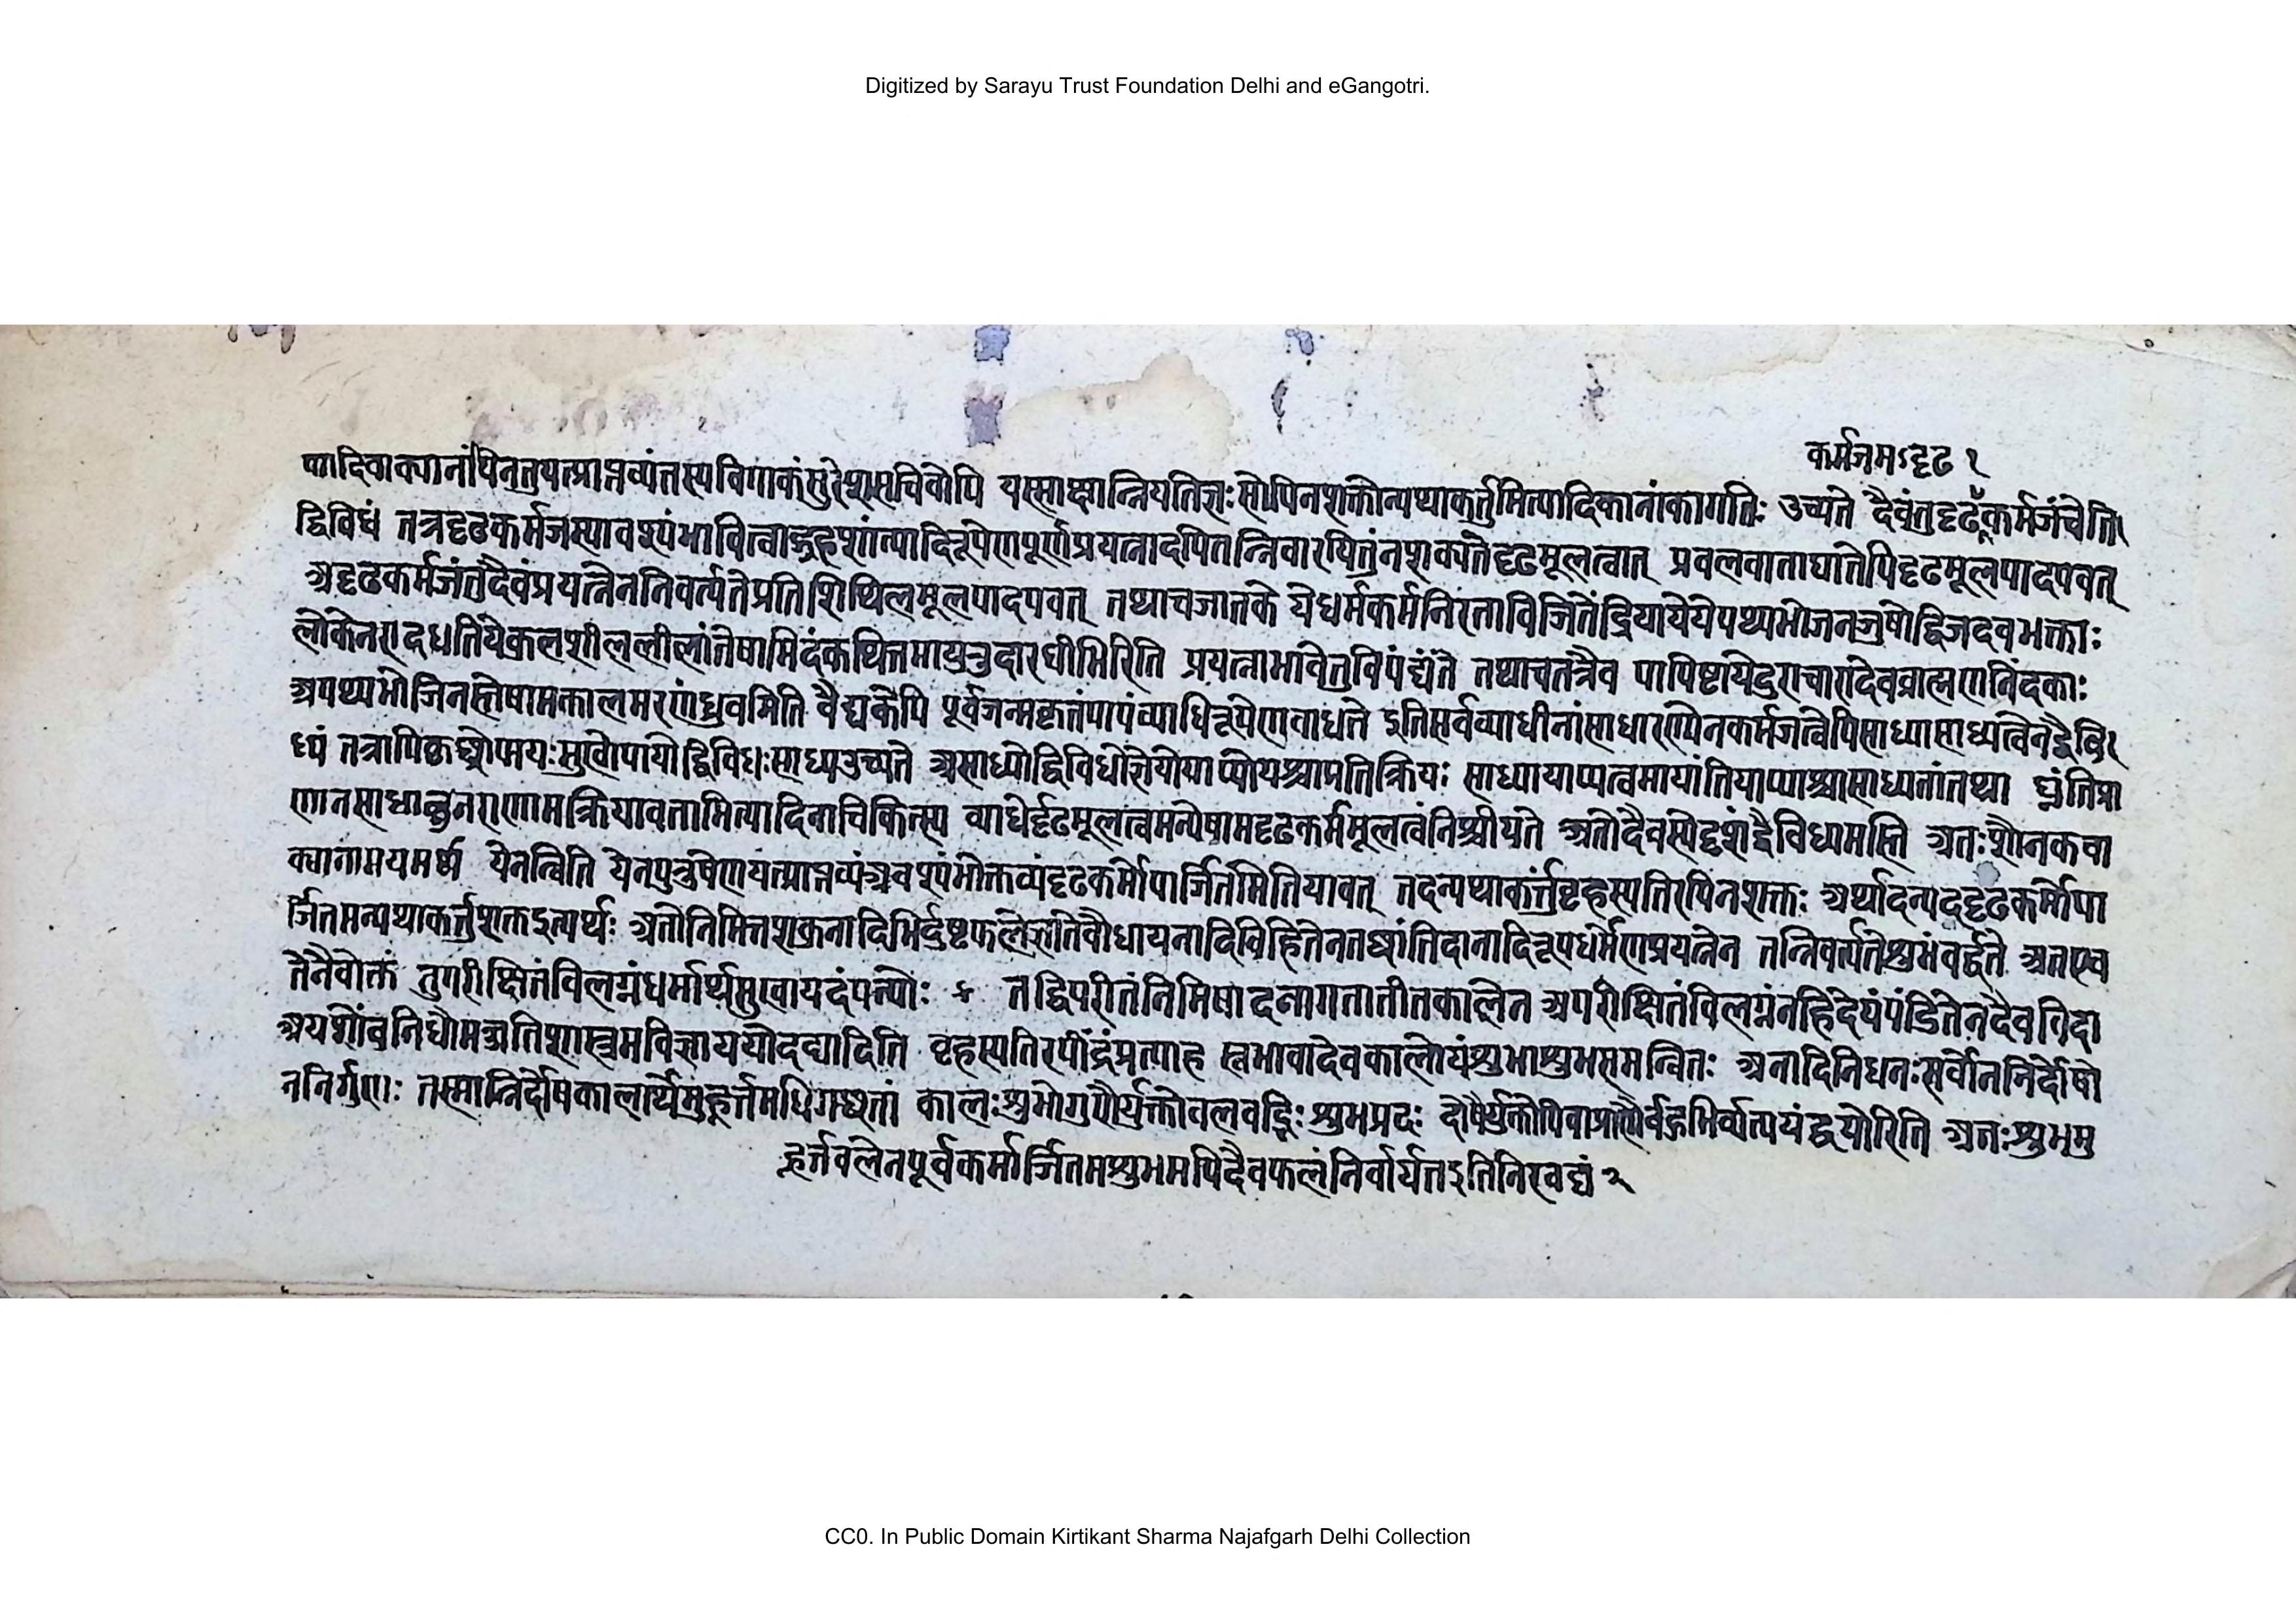 Digitized by Sarayu Trust Foundation Delhi and eGangotri.
कर्मजमऽदृढ १
ण्यादिवाक्यानां येनतुयत्प्राप्तव्यंतस्यविपाकंसुरेशसचिवोपि यस्साक्षान्नियतिज्ञःसोपिनशक्तोन्यथाकर्तुमित्यादिकानांकागतिः उच्यते दैवंतुदृढकर्मजंचेति
द्विविधं तत्रदृढकर्मजस्यावश्यंभावित्वाद्ग्रहशांत्यादिरूपेणपूर्णप्रयत्नादपितन्निवारयितुंनशक्यतेदृढमूलत्वात् प्रवलवाताघातेपिदृढमूलपादपवत्
अदृढकर्मजंतुदैवंप्रयत्नेनतिवर्त्यतेप्रतिशिथिलमूलपादपवत् तथाचजातके येधर्मकर्मनिरताविजितेंद्रियायेयेपथ्यभोजनजुषोद्विजदेवभक्ताः
लोकेनरादधतियेकुलशीललीलांतेषामिदंकथितमायुरुदारधीभिरिति प्रयत्नाभावेतुविपंद्यंते तथाचतत्रैव पापिष्टायेदुराचारादेवब्राह्मणनिंदकाः
अपथ्यभोजिनस्तेषामकालमरणंध्रुवमिति वैद्यकेपि पूर्वजन्मकृतंपापंव्याधिरूपेणवाधते इतिसर्वव्याधीनांसाधारण्येनकर्मजत्वेपिसाध्यासाध्यत्वेनद्वैवि
ध्यं तत्रापिकृछ्रोपायःसुखोपायोद्विविधःसाध्यउच्यते असाध्योद्विविधोज्ञेयोयाप्योयश्चाप्रतिक्रियः साध्यायाप्यत्वमायांतियाप्याश्चासाध्यतांतथा घ्नंतिप्रा
णानसाध्यास्तुनराणामक्रियावतामित्यादिनाचिकित्स्य व्याधेर्दृढमूलत्वमन्येषामदृढकर्ममूलत्वंनिश्चीयते अतोदैवस्येदृशंद्वैविध्यमस्ति अतःशौनकवा
क्यानामयमर्थः येनत्विति येनपुरुषेणयत्प्राप्तव्यंअवश्यंभोक्तव्यंदृढकर्मोपार्जितमितियावत् तदन्यथाकर्त्तुंबृहस्पतिरपिनशक्तः अर्थादन्यददृढकर्मोपा
र्जितमन्यथाकर्त्तुंशक्तइत्यर्थः अतोनिमित्तशकुनादिभिर्दुष्टफलेज्ञातेबौधायनादिविहितेनतछांतिदानादिरूपधर्मेणप्रयत्नेन तन्निवर्त्यतेशुभंवर्द्धते अतएव
तेनैवोक्तं तुपरीक्षितंविलग्नंधर्मार्थसुखायदंपत्योः तद्विपरीतंनिमिषादनागतातीतकालेन अपरीक्षितंविलग्नंनहिदेयंपंडितेनदैवविदा
अयशोवनिधौमज्जतिशास्त्रमविज्ञाययोदद्यादिति बृहस्पतिरपींद्रंप्रत्याह स्वभावादेवकालोयंशुभाशुभसमन्वितः अनादिनिधनःसर्वोननिर्दोषो
ननिर्गुणः तस्मान्निर्दोषकालार्थेमुहूर्त्तमधिगछतां कालःशुभोगुणैर्युक्तोवलवद्भिःशुभप्रदः दोषैर्युक्तोपिवाप्राप्तैर्वद्रभिर्व्यत्ययंद्वयोरिति अतःशुभमु
हूर्त्तवलेनपूर्वकर्मार्जितमशुभमपिदैवफलंनिर्वार्यतइतिनिरवद्यं २
CC0. In Public Domain Kirtikant Sharma Najafgarh Delhi Collection